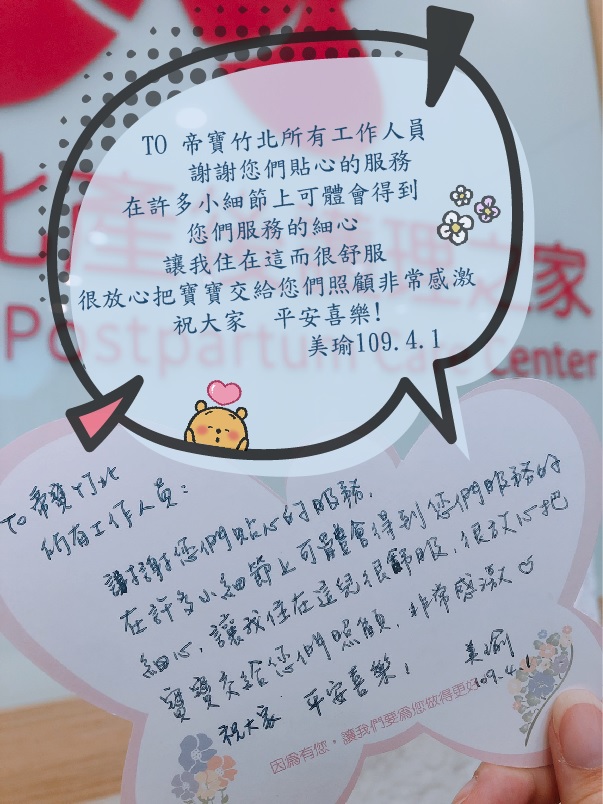 TO 帝寶竹北所有工作人員
謝謝您們貼心的服務
在許多小細節上可體會得到
您們服務的細心
讓我住在這而很舒服
很放心把寶寶交給您們照顧非常感激
祝大家 平安喜樂!
美瑜109.4.1
北產後護理之家
Postpartum Care Center
To 帝寶竹北
所有工作人員:
謝謝您們貼心的服務,
在許多小細節上可體會得到您們服務的
細心,讓我住在這兒很舒服,很放心把
寶寶交給您們照顧,非常感激♡
祝大家 平安喜樂!
美瑜
109.4.1
因為有您,讓我們要為您做得更好